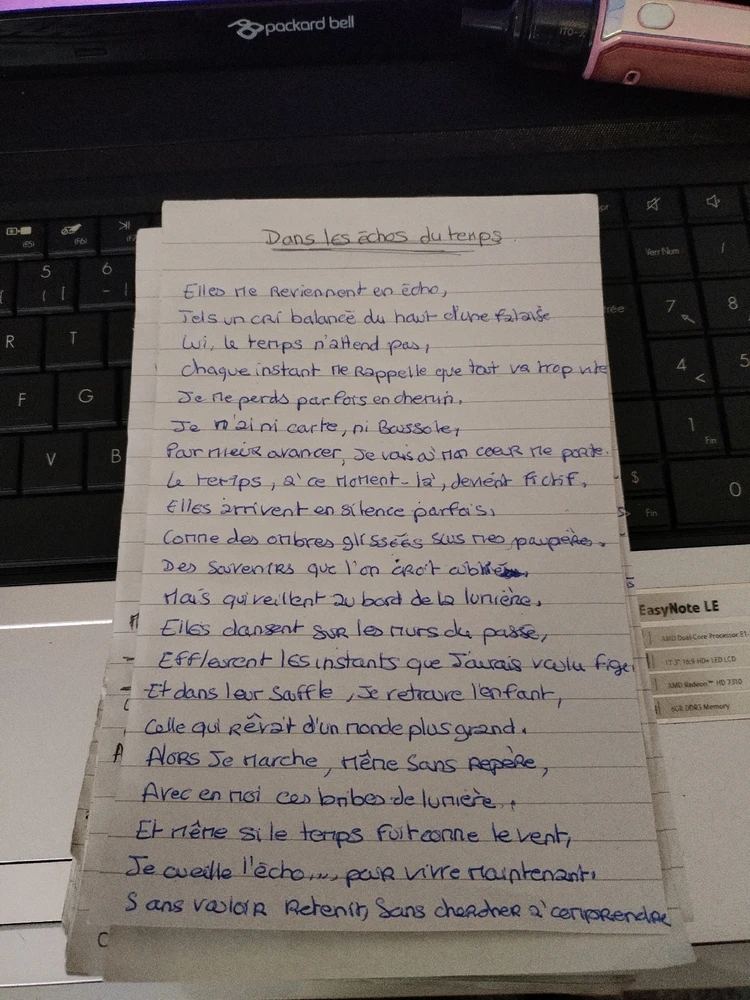 packard bell
Dans les échos du temps
Elles me reviennent en écho,
Tels un cri balancé du haut d'une falaise
Lui, le temps n'attend pas,
Chaque instant me rappelle que tout va trop vite
Je me perds parfois en chemin,
Je n'ai ni carte, ni Boussole,
Pour mieux avancer, Je vais où mon cœur me porte.
Le temps, à ce moment-là, devient fictif,
Elles arrivent en silence parfois,
Comme des ombres glissées sous mes paupières.
Des souvenirs que l'on croit oubliés
Mais qui veillent au bord de la lumière,
Elles dansent sur les murs du passé,
Effleurent les instants que J'aurais voulu figer
Et dans leur souffle, Je retrouve l'enfant,
Celle qui rêvait d'un monde plus grand.
Alors Je marche, même sans repère,
Avec en moi ces bribes de lumière,
Et même si le temps fuit comme le vent,
Je cueille l'écho..., pour vivre maintenant.
Sans vouloir retenir, sans chercher à comprendre
(F5)
(F6)
5
6
( [
- |
R
T
F
G
V
B
Verr Num
/
7
8
4
5
1
Fin
0
$
Fin
A
C
EasyNote LE
AMD Dual-Core Processor E1-
17.3" 16:9 HD+ LED LCD
AMD Radeon™ HD 7310
6GB DDR3 Memory